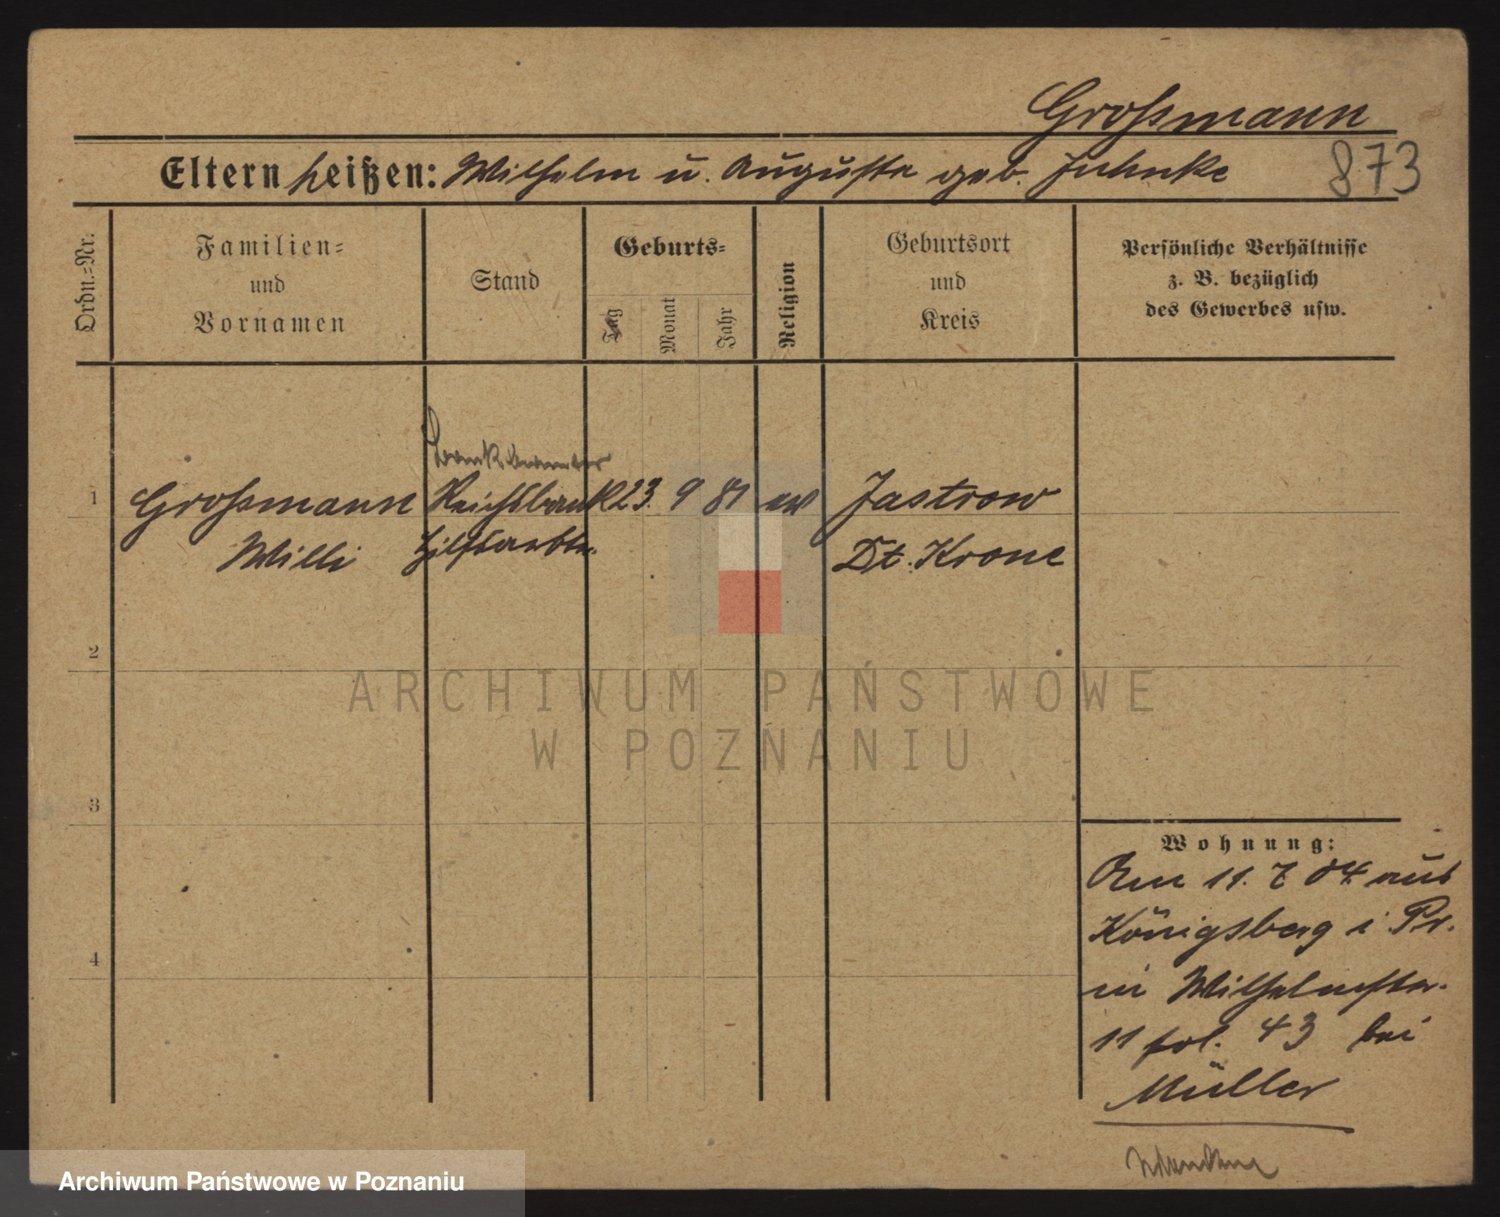 Großmann
Eltern heißen: Wilhelm u. Auguste geb. Juhnke
873
Ordn.-Nr.
Familien-
und
Vornamen
Stand
Geburts-
Tag
Monat
Jahr
Religion
Geburtsort
und
Kreis
Persönliche Verhältnisse
z. B. bezüglich
des Gewerbes usw.
Bankbeamter
1 Großmann Reichsbank 23. 9 81 ev Jastrow
Willi Hilfsarbtr. Dt. Krone
2
3
4
ARCHIWUM PAŃSTWOWE
W POZNANIU
Wohnung:
Am 11. 7 04 aus
Königsberg i Pr.
in Wilhelmstr.
11 pol. 43 bei
Müller
Archiwum Państwowe w Poznaniu